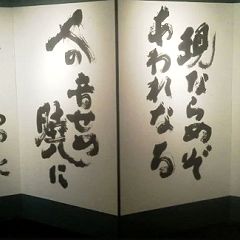 現ならぬぞ
あわれなる
人の
音せぬ
暁に